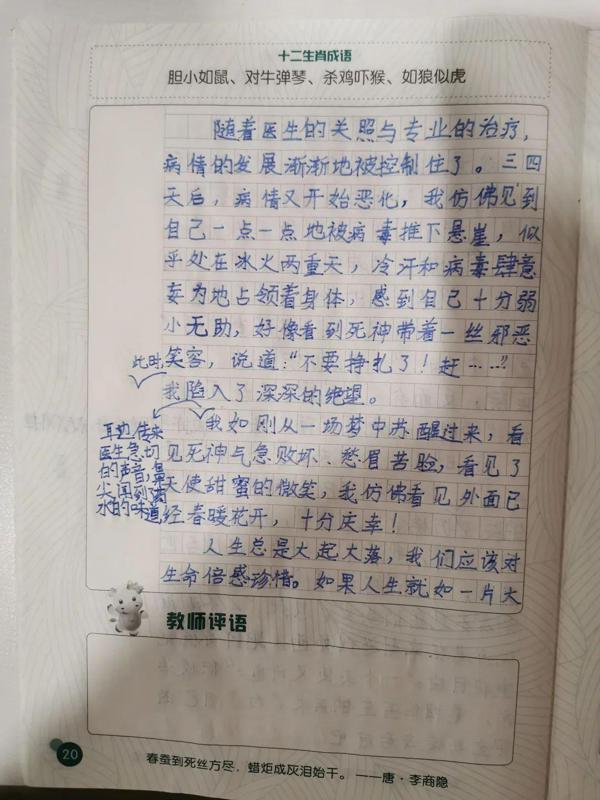 十二生肖成语
胆小如鼠、对牛弹琴、杀鸡吓猴、如狼似虎
随着医生的关照与专业的治疗，
病情的发展渐渐地被控制住了。三四
天后，病情又开始恶化，我仿佛见到
自己一点一点地被病毒推下悬崖，似
乎处在冰火两重天，冷汗和病毒肆意
妄为地占领着身体，感到自己十分弱
小无助，好像看到死神带着一丝邪恶
笑容，说道：“不要挣扎了！赶……”
此时，
我陷入了深深的绝望。
耳边传来
医生急切
的声音，鼻
尖闻到消
水的味道
我如刚从一场梦中苏醒过来，看
见死神气急败坏、愁眉苦脸，看见了
天使甜蜜的微笑，我仿佛看见外面已
经春暖花开，十分庆幸！
人生总是大起大落，我们应该对
生命倍感珍惜。如果人生就如一片大
教师评语
20
春蚕到死丝方尽，蜡炬成灰泪始干。——唐·李商隐